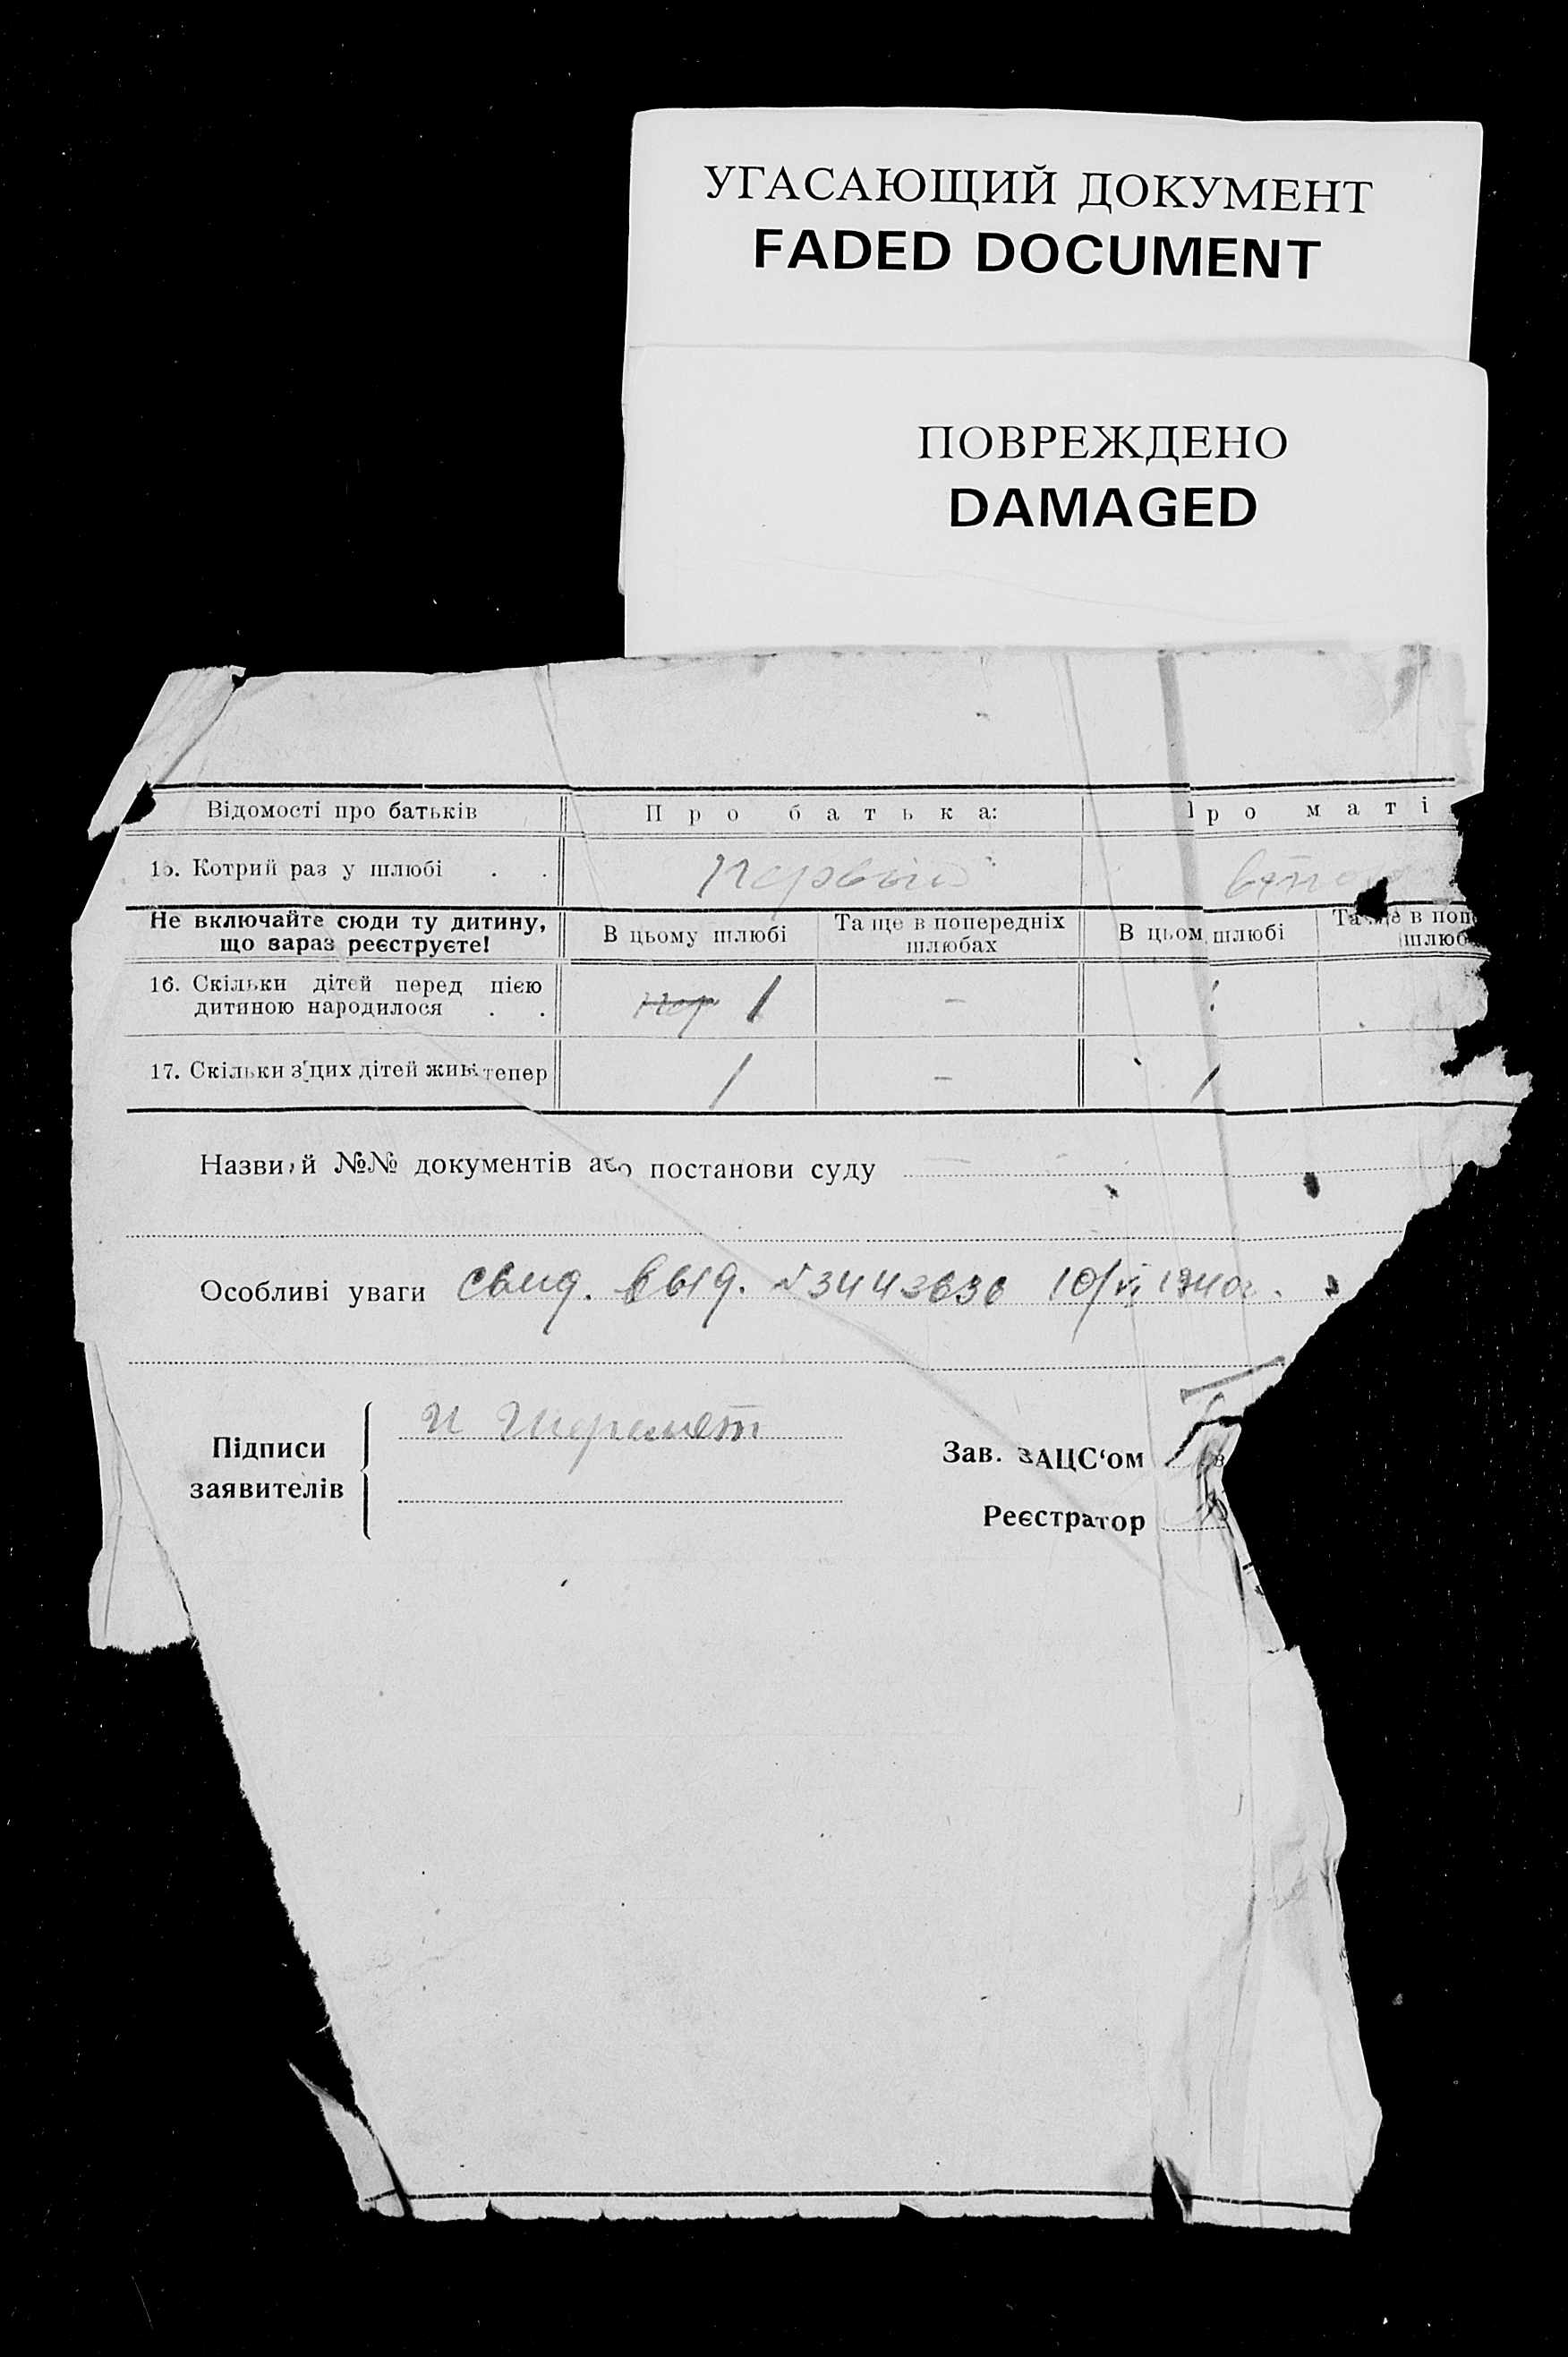 УГАСАЮЩИЙ ДОКУМЕНТ
FADED DOCUMENT
ПОВРЕЖДЕНО
DAMAGED
Відомості про батьків Про батька: Про маті
15. Котрий раз у шлюбі . . Первый
Не включайте сюди ту дитину, що зараз реєструєте! В цьому шлюбі Та ще в попередніх шлюбах В цьом шлюбі Та ще в поп шлюб
16. Скільки дітей перед цією дитиною народилося . . 1 —
17. Скільки з цих дітей живі тепер 1 — 1
Назви й №№ документів або постанови суду
Особливі уваги Свид. выд. № 3442636 10/VI 1940г.
Підписи заявителів
И Шеремет
Зав. ЗАЦС'ом
Реєстратор